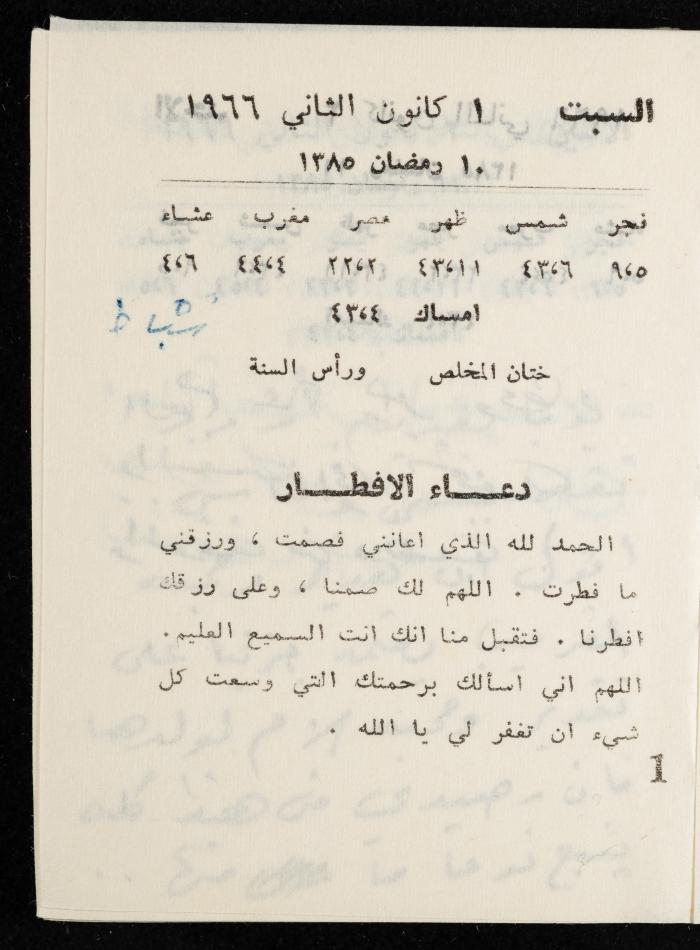 السبت ١ كانون الثاني ١٩٦٦
١٠ رمضان ١٣٨٥
فجر شمس ظهر عصر مغرب عشاء
٩،٥ ٤٣،٦ ٤٣،١١ ٢٢،٢ ٤٤،٤ ٤،٦
امساك ٤٣،٤
شباط
ختان المخلص ورأس السنة
دعاء الافطار
الحمد لله الذي اعانني فصمت ، ورزقني
ما فطرت . اللهم لك صمنا ، وعلى رزقك
افطرنا . فتقبل منا انك انت السميع العليم .
اللهم اني اسألك برحمتك التي وسعت كل
شيء ان تغفر لي يا الله .